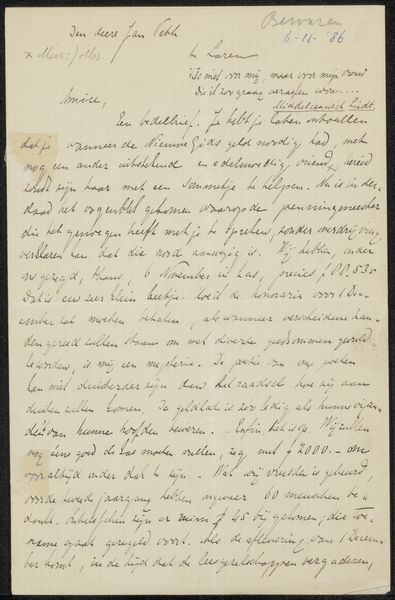 Den heere Jan Veth
Bewaren
6-11-'86
te Laren
Is niet voor mij, maar voor mijn vrouw
Die is zoo graag
Middeleeuwsch Liedt.
Amice,
Een bedelbrief. Je hebt je laten ontvallen
dat je, wanneer de Nieuwe Gids geld noodig had, met
nog een ander uitstekend en edelmoedig vriend, bereid
zoudt zijn haar met een sommetje te helpen. Nu is inder-
daad het oogenblik gekomen waarop de penningmeester
die het genoegen heeft met je te spreken, zonder overdrijving
verklaren kan dat die nood aanwezig is. Wij hebben, onder
ons gezegd, thans, 6 November in kas, precies
Dat is een zeer klein beetje. Hoe ik de honoraria voor 1 De-
cember zal moeten betalen, als wanneer verscheidene han-
den gereed zullen staan om met diverse geldsommen gevuld
te worden, is mij een mysterie. De poëzie van ons
kan niet duisterder zijn dan het raadsel hoe zij aan
duiten zullen komen. De geldlade is zóó ledig als hunne vijan-
den van hunne hoofden beweren. - Enfin, het is op. Wij zullen
nog eens goed de kas moeten vullen, zeg, met ƒ 2000.- om
voor altijd onder dak te zijn. - Wat wij vreesden is gebeurd,
voor de tweede jaargang hebben ongeveer 60 menschen be-
dankt. zijn er ruim 45 bij gekomen; die toe-
name gaat geregeld voort. Als de aflevering van 1 Decem-
ber komt, in de tijd dat de leesgezelschappen vergaderen,